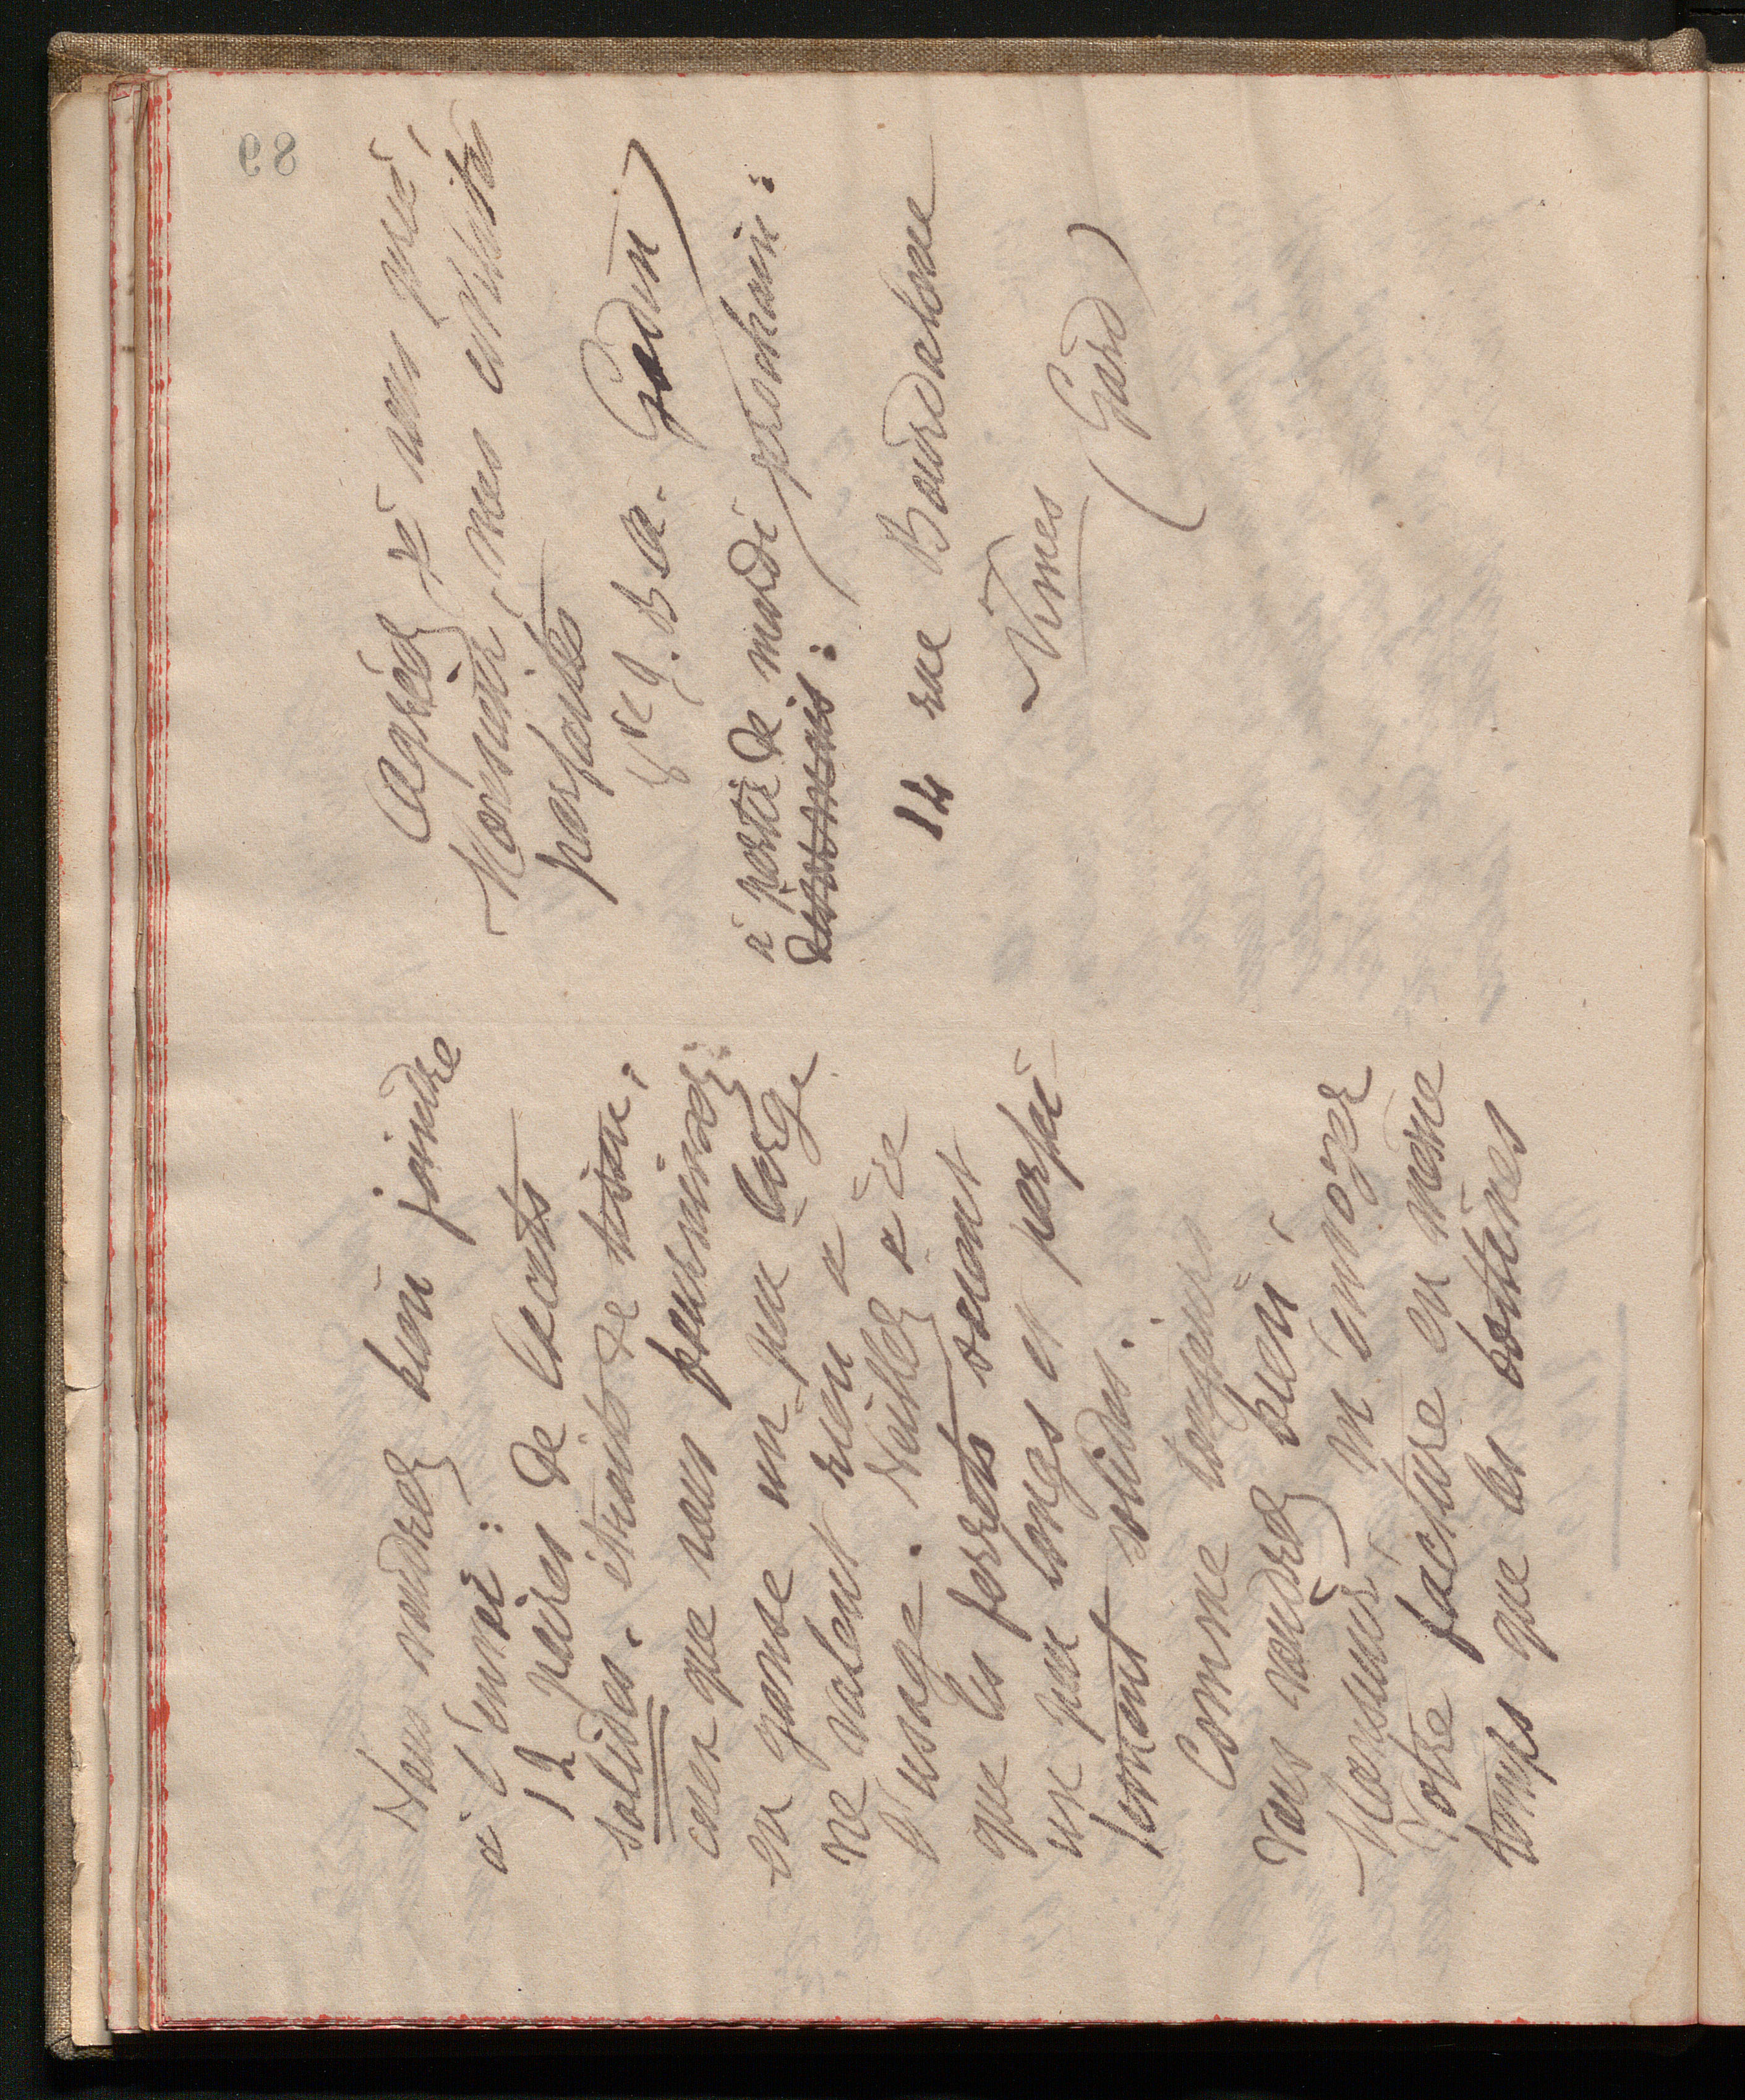 89
Vous voudrez bien joindre
à l'envoi :
12 paires de lacets
solides. étroits de tissu;
ceux que vous fournissez
en ganse un peu large
ne valent rien à
l'usage. Veillez à ce
que les ferrets soient
un peu longs et parfai
tement solides.
Comme toujours
vous voudrez bien
Monsieur m'envoyer
votre facture en même
temps que les bottines
Agréez je vous prie,
Monsieur, mes civilités
parfaites
Vve J. B. A. Godin
à partir de mardi prochain :
14 rue Bourdaloue
Nîmes
(Gard)